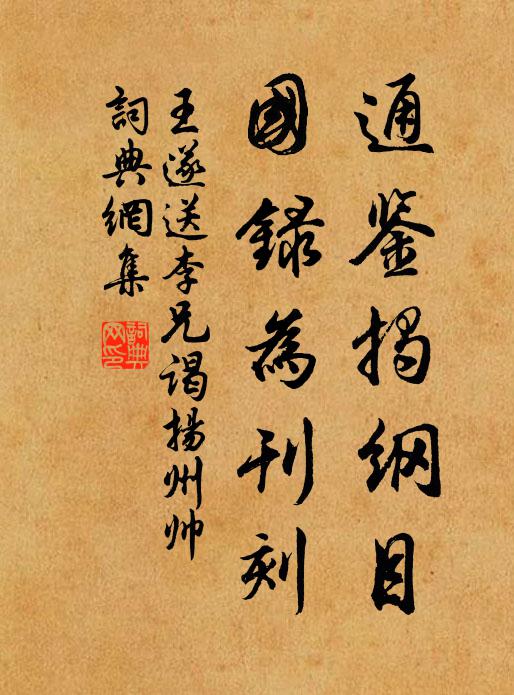 通鉴揭纲目
國録為刊刻
王遂送李兄谒揚州帅
詞典網集
詞典网印